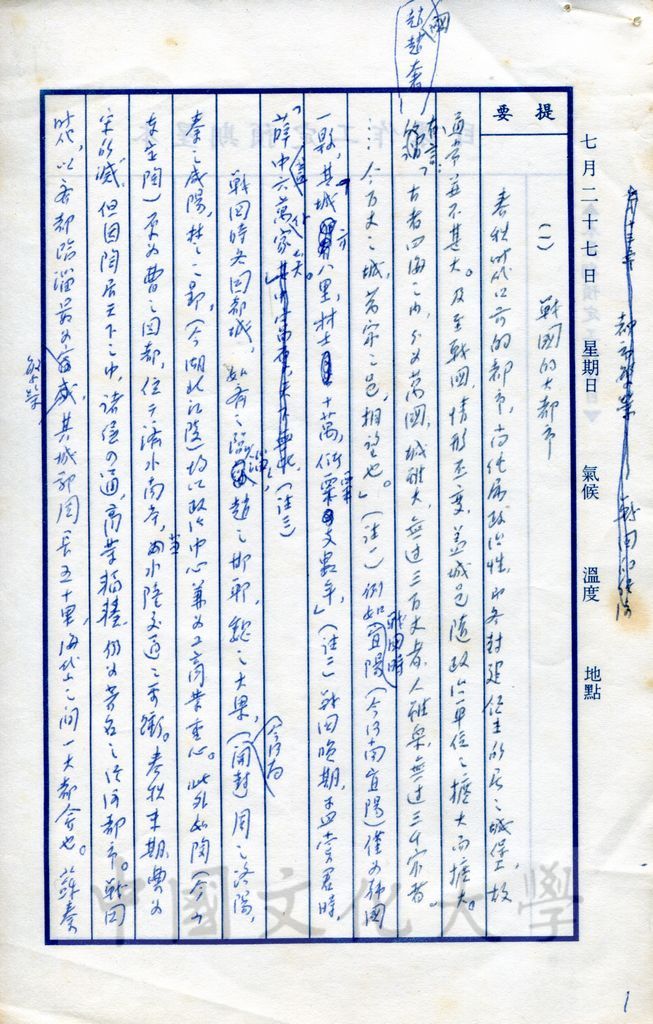 七月二十七日 星期日 氣候 溫度 地點
都市雛業 戰國經濟
提要
(一) 戰國的大都市
春秋時代以前的都市,尚純屬政治性,為各封建領主所居之城堡,故
通常并不甚大。及至戰國,情形丕變,蓋城邑隨政治單位之擴大而擴大。
趙趙奢
國
有言:「古者四海之內,分為萬國,城雖大,無過三百丈者,人雖眾,無過三千家者
…今千丈之城,萬家之邑,相望也。」(註一)例如戰國時宜陽(今河南宜陽)僅為韓國
一縣,其城方八里,材士十萬,粟支數年,」(註二)戰國晚期,孟嘗君時
「薛中六萬家」(註三)
戰國時各國都城,如齊之臨淄,趙之邯鄲,魏之大梁,(今河南開封)周之洛陽,
秦之咸陽,楚之郢(今湖北江陵)均以政治中心兼為工商業重心。此外如陶(今山
東定陶)原為曹之國都,位于濟水南岸,當水陸交通之要衝。春秋末期曹為
宋所滅,但因陶居天下之中,諸侯四通,商業稱盛,仍為著名之經濟都市。戰國
時代,以齊都臨淄最為繁榮,其城郭周長五十里,海岱之間一大都會也。蘇秦
中國文化大學
1